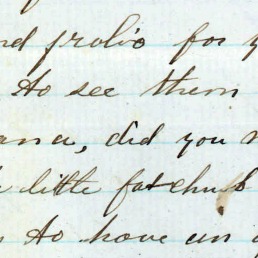 nd frolic for y
to see them
ana, did you n
little fat chub
to have an